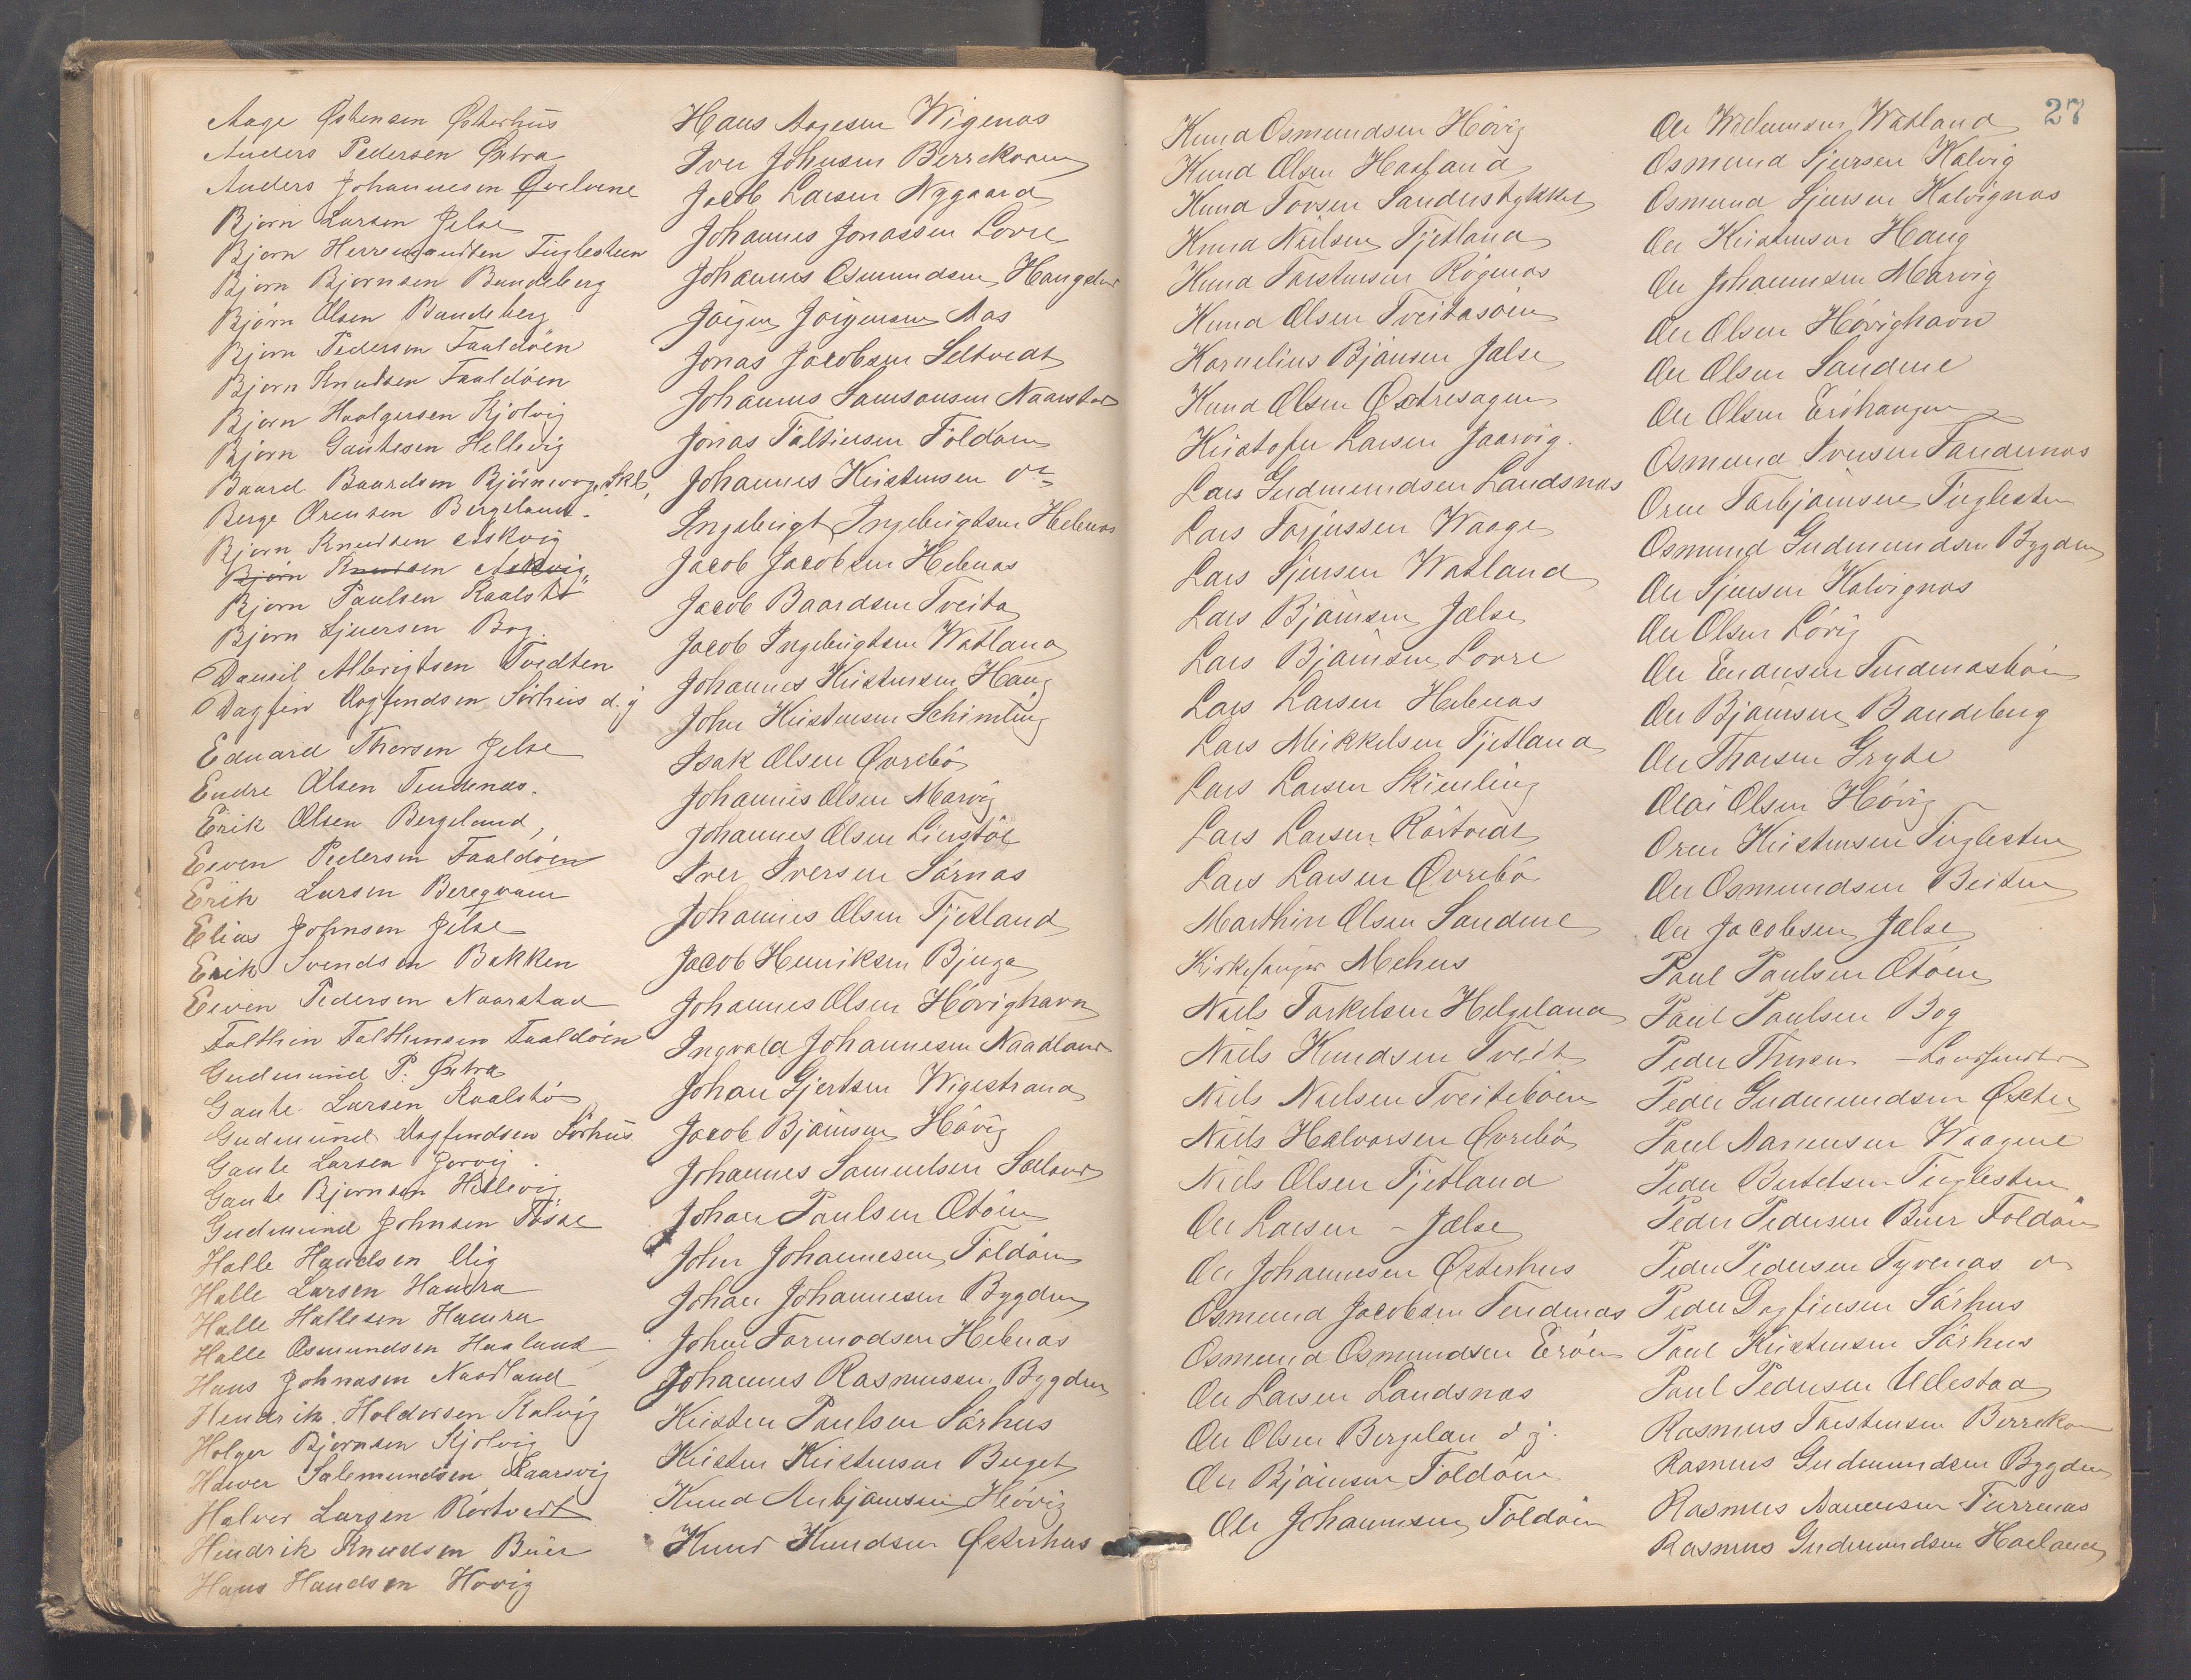 Aage Østensen Østerhus
Anders Pedersen Østra
Anders Johannesen Qvelvene
Bjørn Larsen Jelse
Bjørn Herremandsen Fuglesteen
Bjørn Bjørnsen Bandeberg
Bjørn Olsen Bandeberg
Bjørn Pedersen Faaldøen
Bjørn Knudsen Faaldøen
Bjørn Haalgersen Kjølvig
Bjørn Gautesen Hellevig
Baard Baardsen Bjørnevaag. Skl,
Berge Orensen Bergeland.
Bjørn Knudsen Askvig
Bjørn Knudsen Askvig
Bjørn Paulsen Raalstø
Bjørn Sjuersen Bog.
Daniel Albrigtsen Tvedten
Dagfin Dagfindsen Sørhus d.y
Eduard Thorsen Jelse
Endre Olsen Tendenes.
Erik Olsen Bergeland,
Eiven Pedersen Faaldøen
Erik Larsen Beregvam
Elias Johnsen Jelse
Erik Svendsen Bakken
Eiven Pedersen Naarstad
Falthin Falthinsen Faaldøen
Gudmund P. Østra
Gaute Larsen Raalstø
Gudmund Dagfindsen Sørhus
Gaute Larsen Jorvig.
Gaute Bjørnsen Hellevig
Gudmund Johnsen Fosse
Halle Haudsen Uig
Halle Larsen Hamra
Halle Hallesen Hamra
Halle Osmundsen Haaland
Hans Johnasen Naadland
Hendrik Holdersen Kalvig
Holger Bjørnsen Kjølvig
Halver Salemundsen Raarsvig
Halver Larsen Rørtvedt
Hendrik Knudsen Buer
Hans Haudsen Hovig
Hans Aagesen Wigenæs
Iver Johnsen Berrekvam
Jacob Larsen Nygaard
Johannes Jonassen Lovre
Johannes Osmundsen Haugeland
Jørgen Jørgensen Aas
Jonas Jacobsen Seltvedt
Johannes Samsonsen Naarstad
Jonas Faltinsen Foldøen
Johannes Kristensen do
Ingebrigt Ingebrigtsen Hebnæs
Jacob Jacobsen Hebnæs
Jacob Baardsen Tveita
Jacob Ingebrigtsen Watland
Johannes Kristensen Haug
John Kristensen Schimling
Isak Olsen Øvrebø
Johannes Olsen Marvig
Johannes Olsen Lingstøl
Iver Iversen Sørnæs
Johannes Olsen Tjetland
Jacob Henriksen Bjuga
Johannes Olsen Høvighavn
Ingvald Johannesen Naadland
Johan Gjertsen Wigestrand
Jacob Bjørnsen Høvig
Johannes Samuelsen Sæland
Johan Paulsen Otøen
John Johannesen Foldøen
Johan Johannesen Bygden
John Tormodsen Hebnæs
Johannes Rasmussen Bygden
Kristen Paulsen Sørhus
Kristen Kristensen Buget
Knud Anbjørnsen Høvig
Knud Knudsen Østerhus
27
Knud Osmundsen Høvig
Knud Olsen Haaland
Knud Tovsen Sanderstykket
Knud Nielsen Tjetland
Knud Torstensen Røgenæs
Knud Olsen Tveitasøen
Kornelius Bjørnsen Jælse
Knud Olsen Østresagen
Kristofer Larsen Jaarvig.
Lars Gudmundsen Landsnæs
Lars Torjussen Waage
Lars Sjursen Watland
Lars Bjørnsen Jælse
Lars Bjørnsen Lovre
Lars Larsen Hebnæs
Lars Mikkelsen Tjetland
Lars Larsen Skimling
Lars Larsen Rørtvedt
Lars Larsen Øvrebø
Marthin Olsen Sandene
Kirkesanger Mehus
Niels Torkelsen Helgeland
Niels Knudsen Tveit
Niels Nielsen Tveitebøen
Niels Halvorsen Øvrebø
Niels Olsen Tjetland
Ole Larsen – Jælse
Ole Johannesen Østerhus
Osmund Jacobsen Tendenæs
Osmund Osmundsen Erøen
Ole Larsen Landsnæs
Ole Olsen Bergelan d y.
Ole Bjørnsen Foldøen
Ole Johannesen Foldøen
Ole Watland
Osmund Sjursen Kalvig
Osmund Sjursen Kalvignæs
Ole Kristensen Haug
Ole Johannesen Marvig
Ole Olsen Høvighavn
Ole Olsen Sandene
Ole Olsen Erihaugen
Osmund Iversen Tandenæs
Oren Torbjørnsen Fuglesten
Osmund Gudmundsen Bygden
Ole Sjursen Kalvignæs
Ole Olsen Løvig
Ole Endresen Tendenæsbøen
Ole Bjørnsen Bandeberg
Ole Thorsen Gryte
Olai Olsen Høvig
Oren Kristensen Fuglesten
Ole Osmundsen Beiten
Ole Jacobsen Jælse
Paul Paulsen Otøen
Paul Paulsen Bog
Peder Thorsen – Landhandler
Peder Gudmundsen Østre
Paul Aanensen Waagene
Peder Bertelsen Fuglesten
Peder Pedersen Buer Foldøen
Peder Pedersen Tyvenæs do
Peder Dagfinsen Sørhus
Paul Kristensen Sørhus
Paul Pedersen Ulestad
Rasmus Torstensen Berrekvam
Rasmus Gudmundsen Bygden
Rasmus Aanensen Turrenæs
Rasmus Gudmundsen Haaland